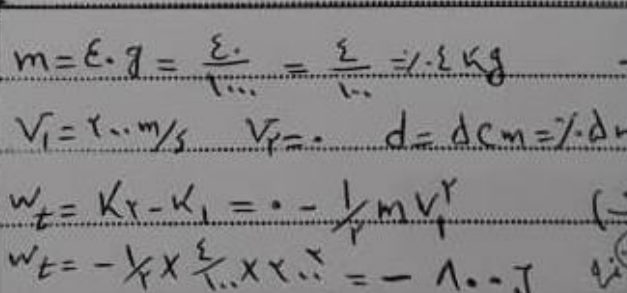 m = ۴۰ g = ۴۰/۱۰۰۰ = ۴/۱۰۰ = ۰/۰۴ kg
V₁ = ۲۰۰ m/s V₂ = ۰ d = ۵ cm = ۰/۰۵
W_t = K₂ - K₁ = ۰ - ۱/۲ m V₁²
W_t = -۱/۲ × ۴/۱۰۰ × ۲۰۰² = - ۸۰۰ J